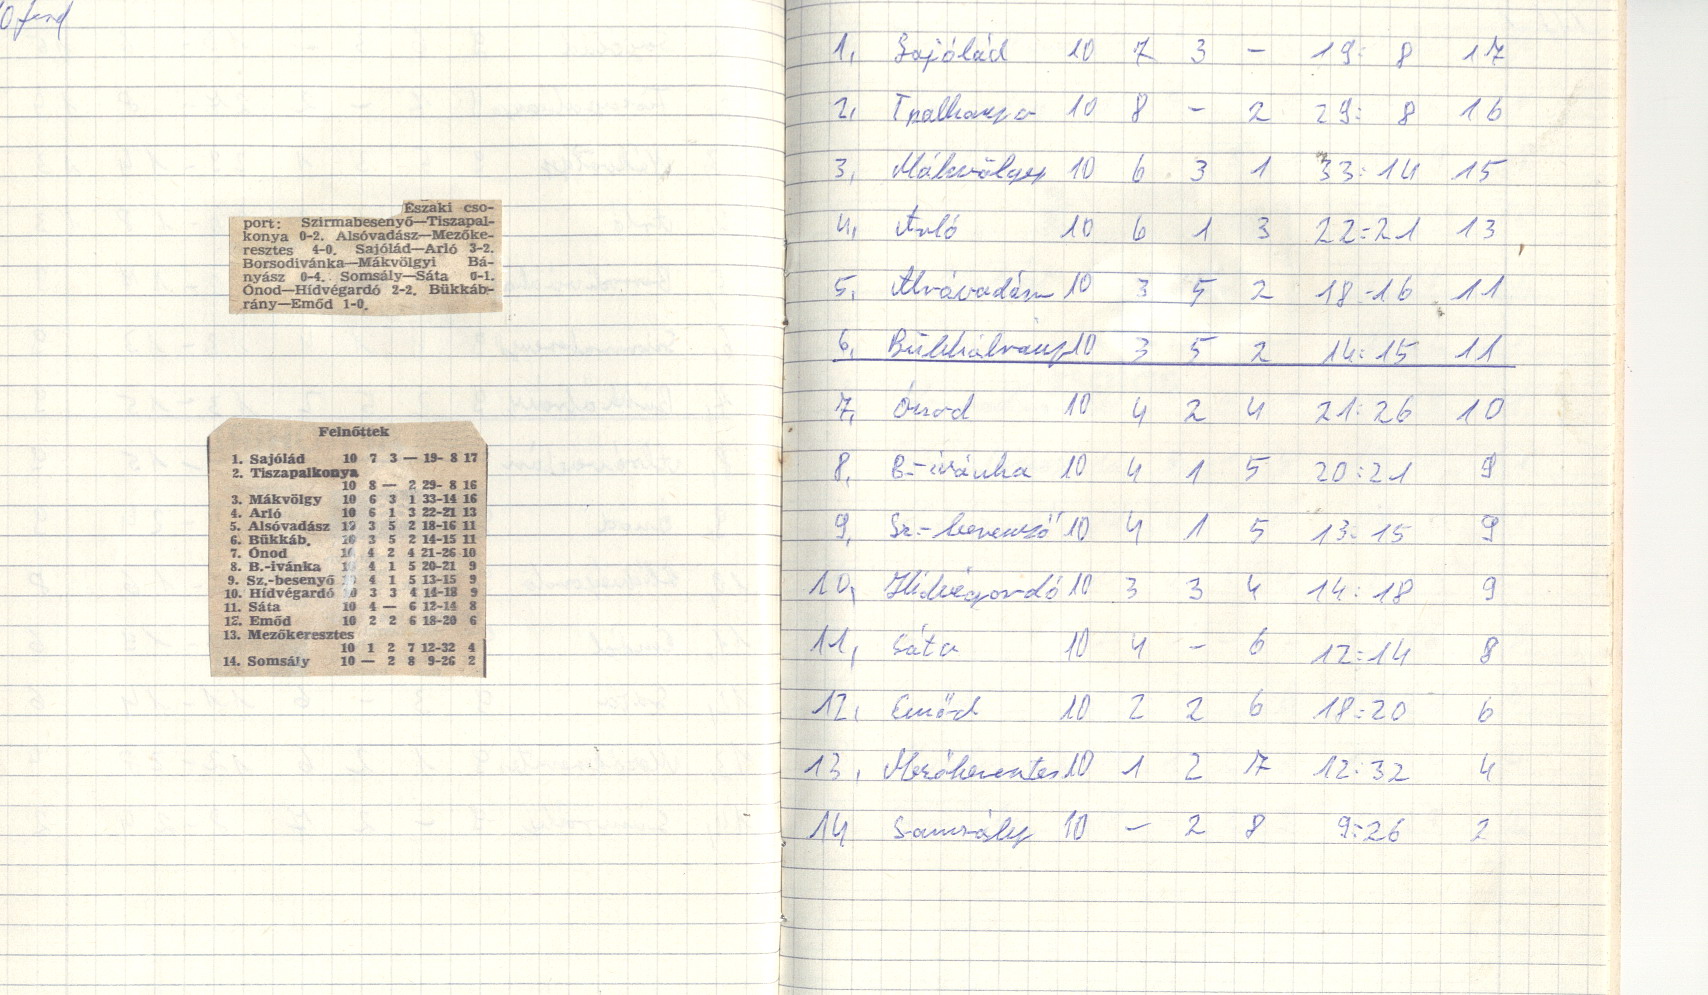 Északi cso-
port: Szirmabesenyő—Tiszapal-
konya 0-2. Alsóvadász—Mezőke-
resztes 4-0. Sajólád—Arló 3-2.
Borsodivánka—Mákvölgyi Bá-
nyász 0-4. Somsály—Sáta 0-1.
Ónod—Hídvégardó 2-2. Bükkáb-
rány—Emőd 1-0.
Felnőttek
1. Sajólád 10 7 3 — 19- 8 17
2. Tiszapalkonya
10 8 — 2 29- 8 16
3. Mákvölgy 10 6 3 1 33-14 16
4. Arló 10 6 1 3 22-21 13
5. Alsóvadász 10 3 5 2 18-16 11
6. Bükkáb. 10 3 5 2 14-15 11
7. Ónod 10 4 2 4 21-26 10
8. B.-ivánka 10 4 1 5 20-21 9
9. Sz.-besenyő 10 4 1 5 13-15 9
10. Hídvégardó 10 3 3 4 14-18 9
11. Sáta 10 4 — 6 12-14 8
12. Emőd 10 2 2 6 18-20 6
13. Mezőkeresztes
10 1 2 7 12-32 4
14. Somsály 10 — 2 8 9-26 2
1, Sajólád 10 7 3 – 19: 8 17
2, Tpalkonya 10 8 – 2 29: 8 16
3, Mákvölgy 10 6 3 1 33:14 15
4, Arló 10 6 1 3 22:21 13
5, Alsóvadász 10 3 5 2 18-16 11
6, Bükkábrány 10 3 5 2 14:15 11
7, Ónod 10 4 2 4 21:26 10
8, B.-ivánka 10 4 1 5 20:21 9
9, Sz.-besenyő 10 4 1 5 13:15 9
10, Hídvégardó 10 3 3 4 14:18 9
11, Sáta 10 4 – 6 12:14 8
12, Emőd 10 2 2 6 18:20 6
13, Mezőkeresztes 10 1 2 7 12:32 4
14 Somsály 10 – 2 8 9:26 2